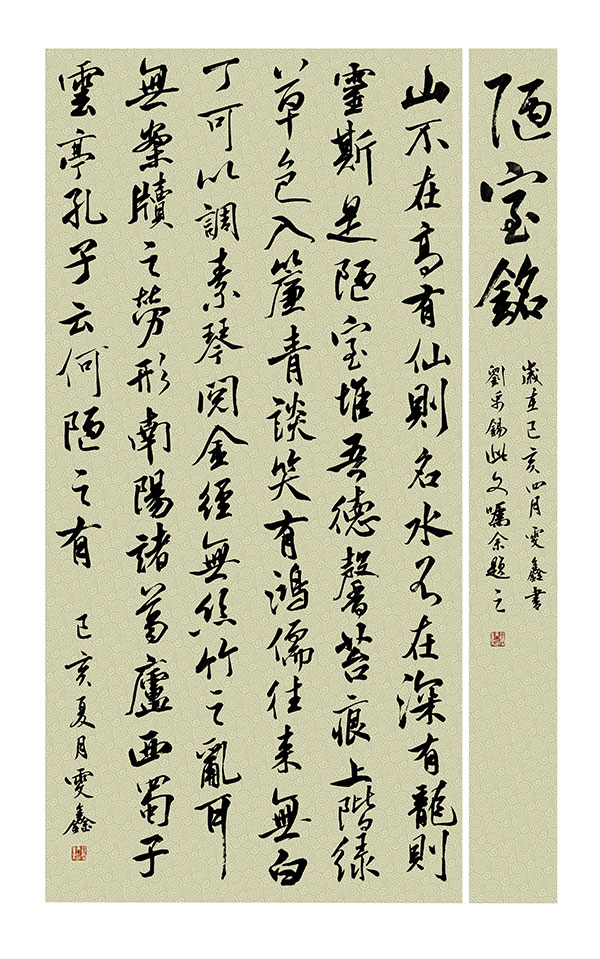 陋室銘
歲在己亥四月雯鑫書
劉禹錫此文囑余題之
山不在高有仙則名水不在深有龍則
靈斯是陋室惟吾德馨苔痕上階綠
草色入簾青談笑有鴻儒往來無白
丁可以調素琴閱金經無絲竹之亂耳
無案牘之勞形南陽諸葛廬西蜀子
雲亭孔子云何陋之有 己亥夏月雯鑫